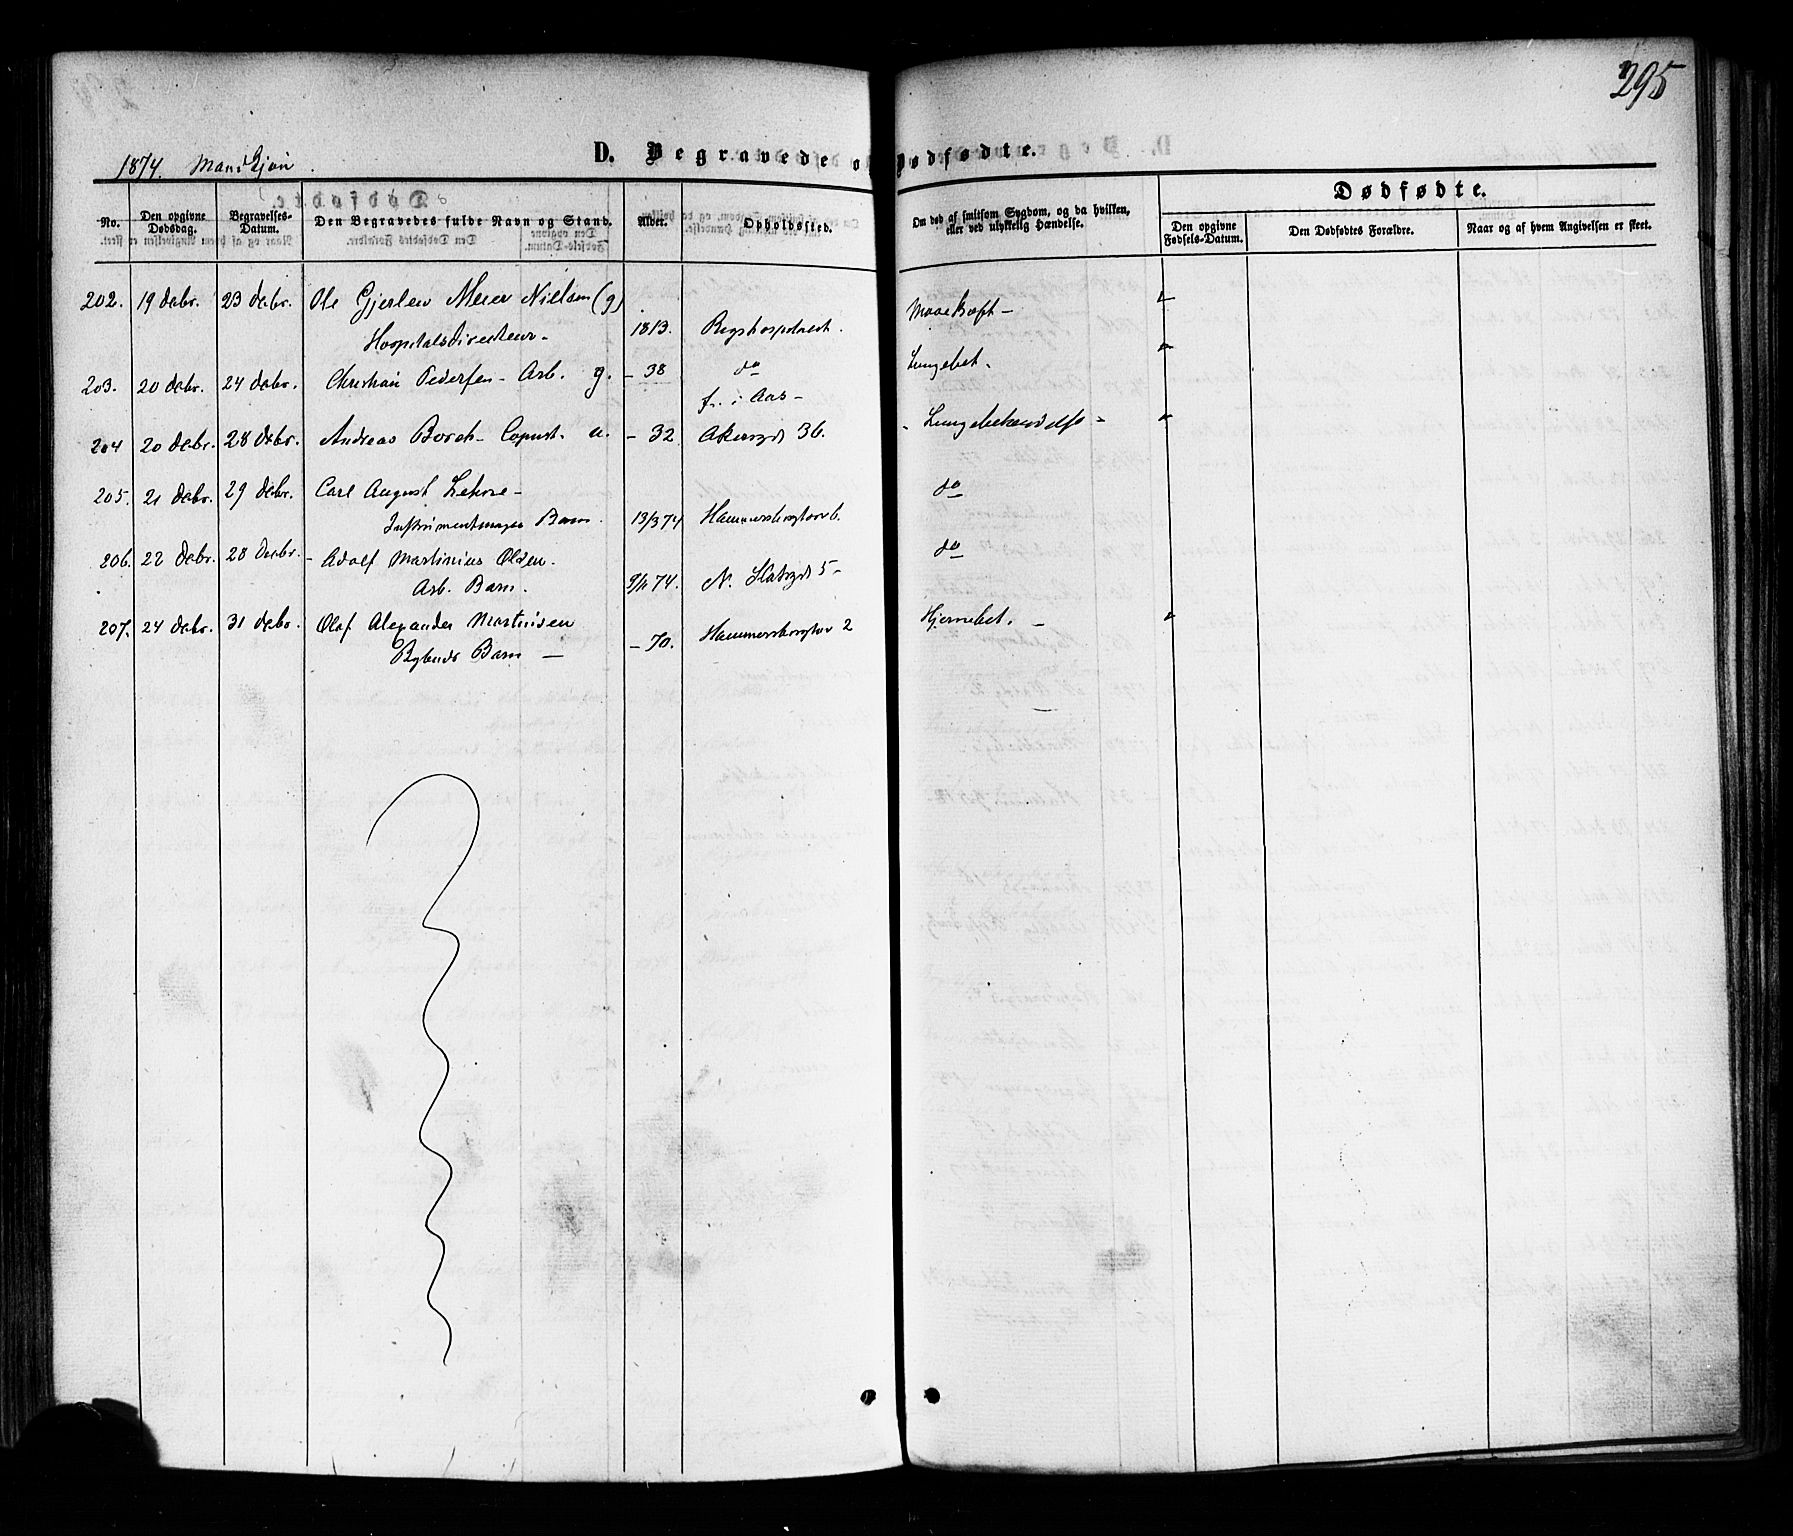 295
1874. Mandkjøn.
D. Begravede og Dødfødte.
Dødfødte.
No.
Den opgivne Dødsdag.
Begravelses-Datum.
Den Begravedes fulde Navn og Stand.
Alder.
Opholdssted.
Om død af smitsom Sygdom, og da hvilken, eller ved ulykkelig Hændelse.
Den opgivne Fødsels-Datum.
Den Dødfødtes Forældre.
Naar og af hvem Angivelsen er skeet.
202. 19 debr. 23 debr. Ole Gjerlew Meier Nielsen (g)
Hospitalsdirecteur - 1813. Rigshospitalet.
203. 20 debr. 24 debr. Christian Pedersen - Arb. g. - 38 do Lungebet.
f. i Aas -
204 20 debr. 28 debr. Andreas Borch - Copist. u. - 32 Akersgd 36. Lungebetændelse -
205. 21 debr. 29 debr. Carl August - do
Instrumentmager Barn. 13/3 74 Hammersborgtorv 6.
206. 22 debr. 28 debr. - Adolf Martinius Olsen. do
Arb. Barn. 74. N. Slotsgd 5 -
207. 24 debr. 31 debr. Olaf Alexander Martinsen Hjernebet. -
Barn - - 70. Hammersborgtorv 2